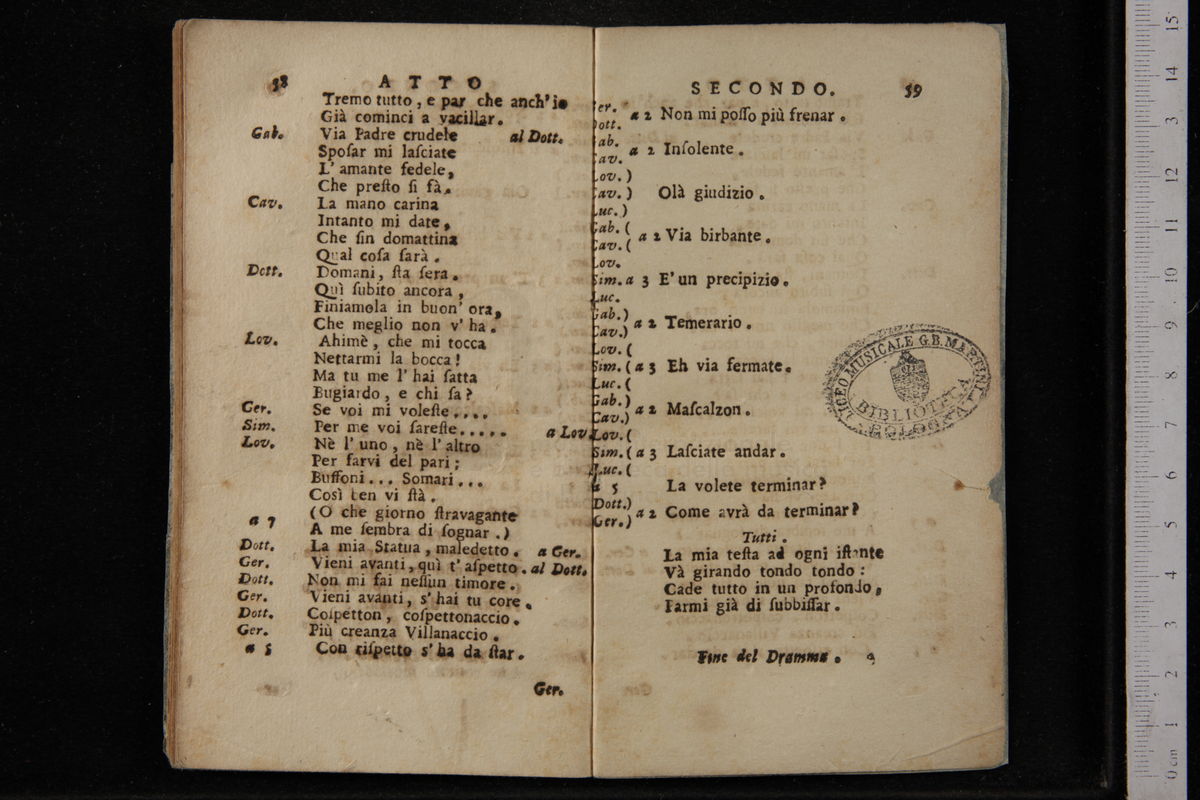 38 ATTO
Tremo tutto, e par che anch'io
Già cominci a vacillar.
Gab. Via Padre crudele al Dott.
Spoſar mi laſciate
L'amante fedele,
Che preſto ſi fà.
Cav. La mano carina
Intanto mi date,
Che ſin domattina
Qual coſa ſarà.
Dott. Domani, ſta ſera.
Quì ſubito ancora,
Finiamola in buon' ora,
Che meglio non v' ha.
Lov. Ahimè, che mi tocca
Nettarmi la bocca!
Ma tu me l' hai fatta
Bugiardo, e chi ſa?
Ger. Se voi mi voleſte....
Sim. Per me voi ſareſte..... a Lov.
Lov. Nè l' uno, nè l' altro
Per farvi del pari;
Buffoni... Somari...
Così ben vi ſtà.
a 7 (O che giorno ſtravagante
A me ſembra di ſognar.)
Dott. La mia Statua, maledetto. a Ger.
Ger. Vieni avanti, quì t' aſpetto. al Dott.
Dott. Non mi fai neſſun timore.
Ger. Vieni avanti, s' hai tu core.
Dott. Coſpetton, coſpettonaccio.
Ger. Più creanza Villanaccio.
a 5 Con riſpetto s' ha da ſtar.
Ger.
SECONDO. 59
Ger.
Dott. a 2 Non mi poſſo più frenar.
Gab.
Cav. a 2 Inſolente.
Lov. )
Cav. ) Olà giudizio.
Luc. )
Gab. (
Cav. ( a 2 Via birbante.
Lov.
Sim. a 3 E' un precipizio.
Luc.
Gab.)
Cav.) a 2 Temerario.
Lov. (
Sim. ( a 3 Eh via fermate.
Luc. (
Gab.)
Cav.) a 2 Maſcalzon.
Lov. (
Sim. ( a 3 Laſciate andar.
Luc. (
a 5 La volete terminar?
Dott.)
Ger.) a 2 Come avrà da terminar?
Tutti.
La mia teſta ad ogni iſtante
Và girando tondo tondo:
Cade tutto in un profondo,
Parmi già di ſubbiſſar.
Fine del Dramma.
LICEO MUSICALE G.B. MARTINI
BIBLIOTECA
BOLOGNA
0 cm 1 2 3 4 5 6 7 8 9 10 11 12 13 14 15